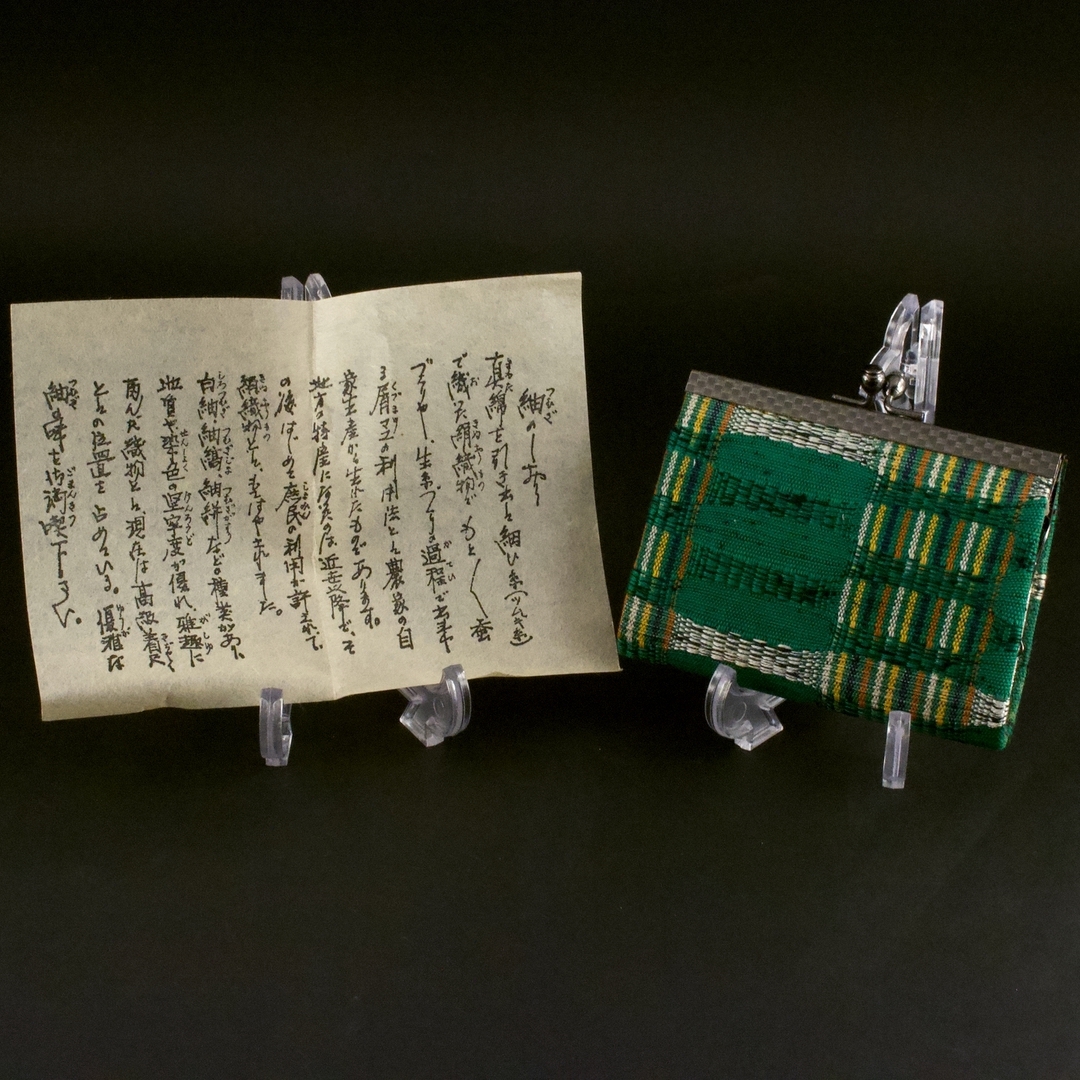 紬のしおり
真綿を引き出し細い糸(ツムギ糸)
で織った絹織物で もと〱蚕
づくりや、生糸づくりの過程で出来
る屑マユの利用法として農家の自
家生産から生れたものであります。
地方の特産になるのは近世以降で、そ
の後はじめて庶民の利用が許されて、
絹織物として、もてはやされました。
白紬・紬縞・紬絣など。種類があり
地質や染色の堅牢度が優れ雅趣に
富んだ織物として、現在は高級着尺
としての位置を占めている。優雅な
紬の味を御満喫下さい。